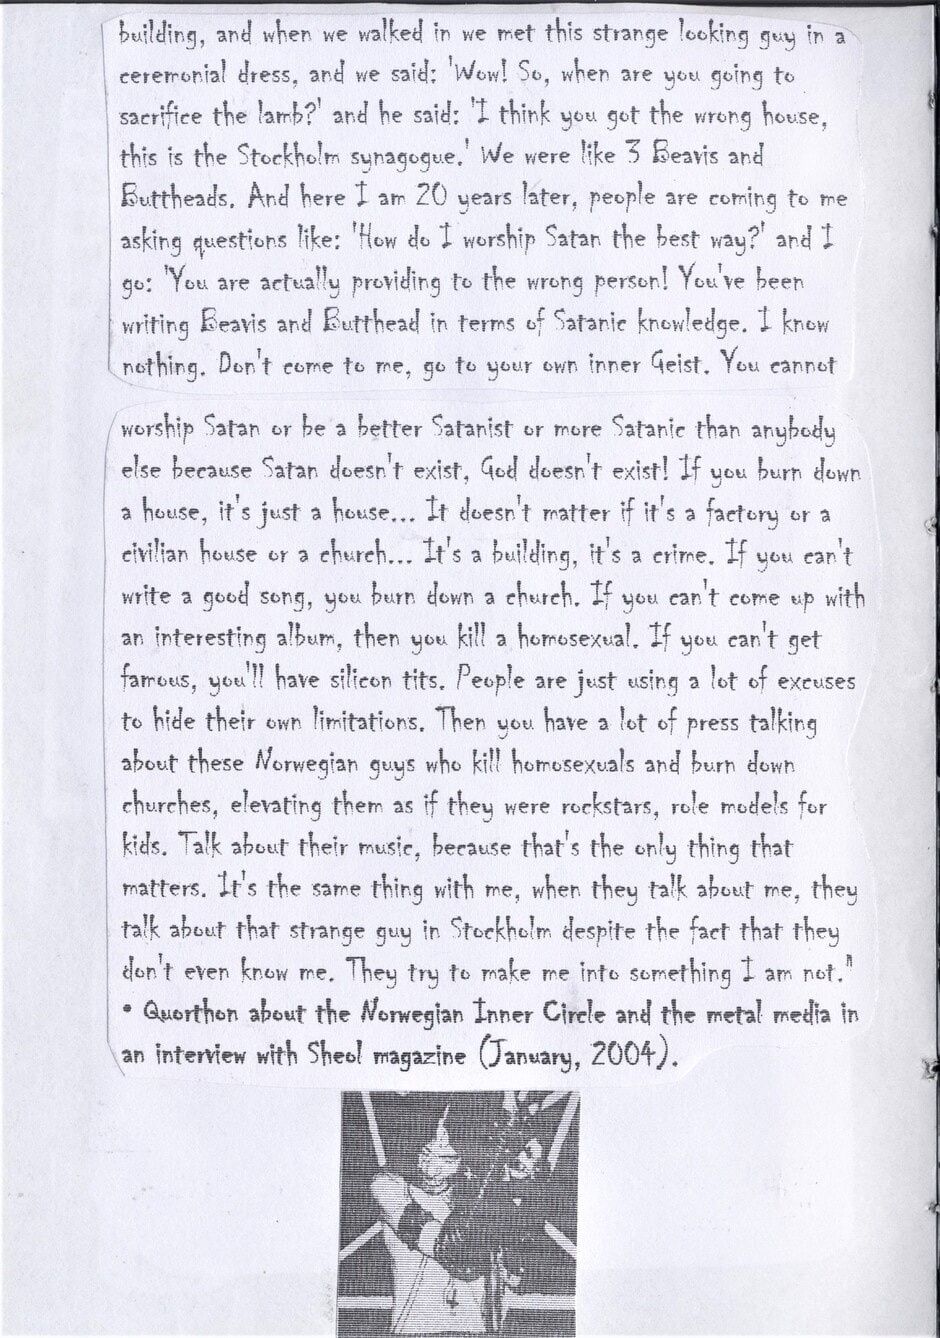 building, and when we walked in we met this strange looking guy in a
ceremonial dress, and we said: 'Wow! So, when are you going to
sacrifice the lamb?' and he said: 'I think you got the wrong house,
this is the Stockholm synagogue.' We were like 3 Beavis and
Buttheads. And here I am 20 years later, people are coming to me
asking questions like: 'How do I worship Satan the best way?' and I
go: 'You are actually providing to the wrong person! You've been
writing Beavis and Butthead in terms of Satanic knowledge. I know
nothing. Don't come to me, go to your own inner Geist. You cannot
worship Satan or be a better Satanist or more Satanic than anybody
else because Satan doesn't exist, God doesn't exist! If you burn down
a house, it's just a house... It doesn't matter if it's a factory or a
civilian house or a church... It's a building, it's a crime. If you can't
write a good song, you burn down a church. If you can't come up with
an interesting album, then you kill a homosexual. If you can't get
famous, you'll have silicon tits. People are just using a lot of excuses
to hide their own limitations. Then you have a lot of press talking
about these Norwegian guys who kill homosexuals and burn down
churches, elevating them as if they were rockstars, role models for
kids. Talk about their music, because that's the only thing that
matters. It's the same thing with me, when they talk about me, they
talk about that strange guy in Stockholm despite the fact that they
don't even know me. They try to make me into something I am not."
• Quorthon about the Norwegian Inner Circle and the metal media in
an interview with Sheol magazine (January, 2004).